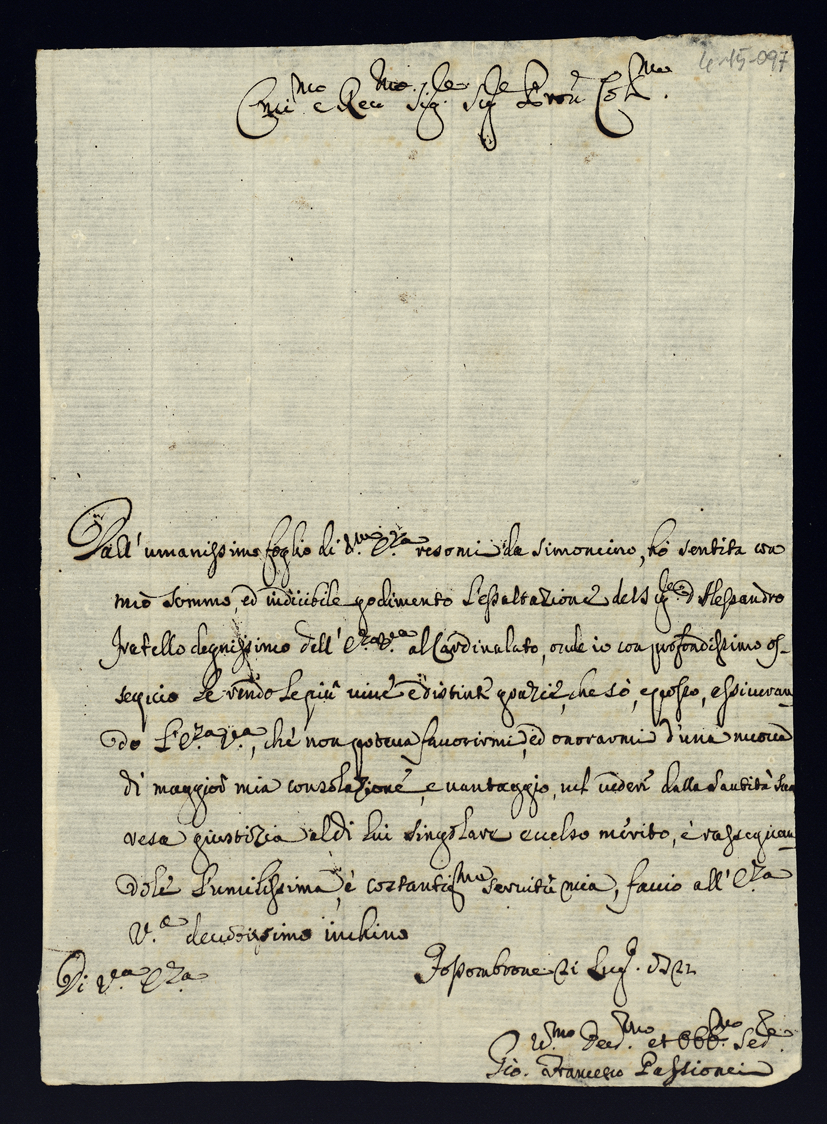 4-15-097
Emi.mo e Reu.mo Sig.re Sig.re Pron Col.mo
Dall'umanissimo foglio di V.ra E.za resomi da Simoncino, hò sentita con
mio sommo, ed indicibile godimento l'essaltazione del Sig.re D Alessandro
fratello degnissimo dell'E.za V.a al Cardinalato, onde io con profondissimo os-
sequio le rendo le più vive e distinte grazie, che sò, e posso, assiveran
do l'E.za V.a, che non poteva favorirmi, ed onorarmi d'una nuova
di maggior mia consolazione, e vantaggio, nel vedere dalla Santità Sua
resa giustizia al di lui singolare eccelso merito, e rassegnan
dole l'umilissima, e costantis.ma servitù mia, faccio all'E.za
V.a devotissimo inchino
Di V.ra E.za
Fossombrone 21 Lug. 1721
U.mo Deu.mo et Obb.mo Ser.re
Gio. Francesco Passionei